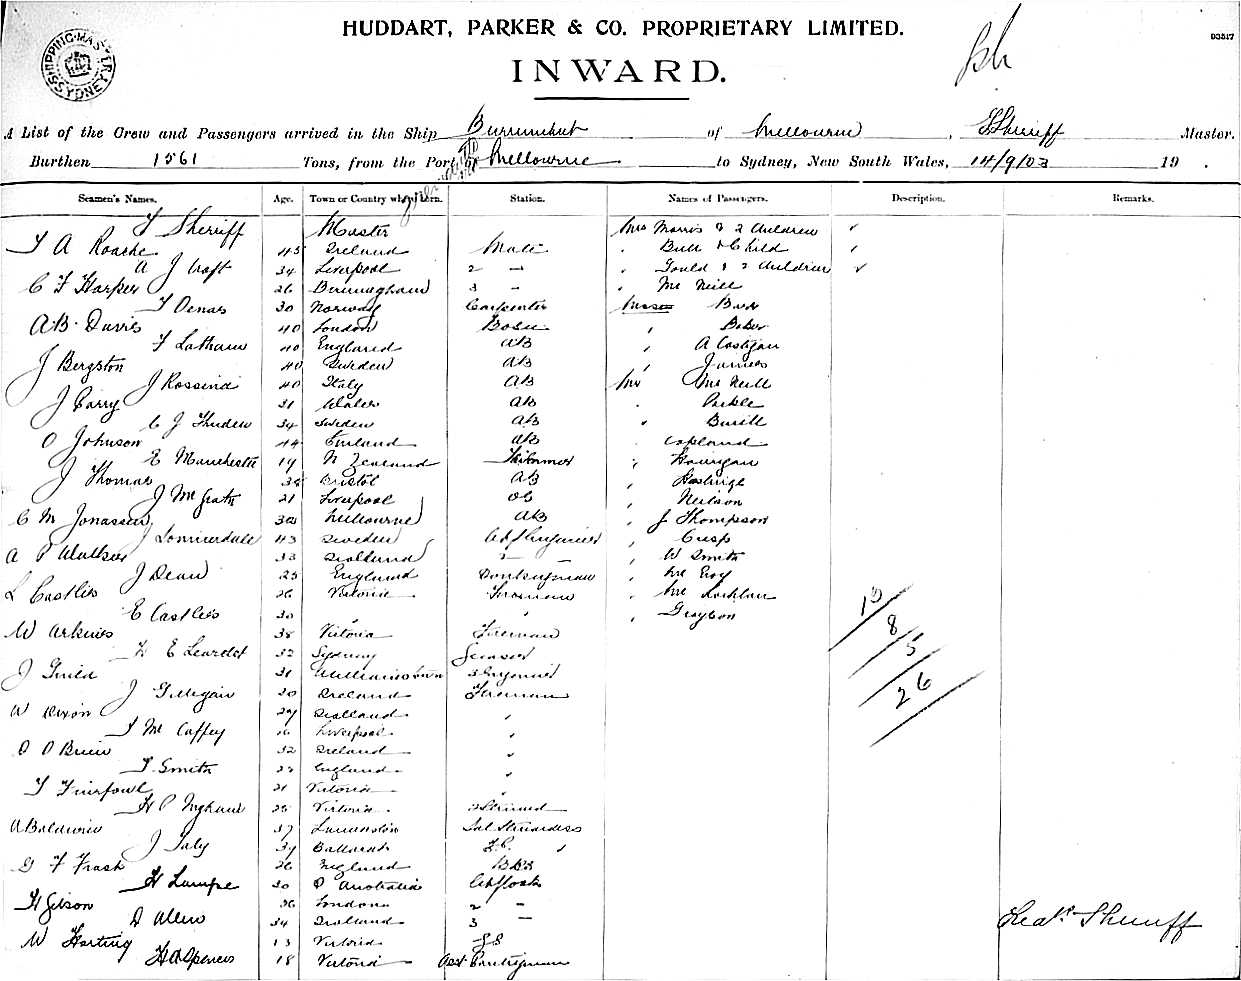 HUDDART, PARKER & CO. PROPRIETARY LIMITED.
D3517
SHIPPING MASTER SYDNEY
INWARD.
A List of the Crew and Passengers arrived in the Ship Burrumbeet of Melbourne, T Sherriff Master.
Burthen 1561 Tons, from the Port of Melbourne to Sydney, New South Wales, 14/9/03 19 .
Seamen's Names. Age. Town or Country where Born. Station. Names of Passengers. Description. Remarks.
T Sherriff Master Mrs Morris & 2 Children
T A Roache 45 Ireland Mate " Bull & Child
A J Croft 34 Liverpool 2 " " Gould & 2 Children
C F Harper 26 Birmingham 3 " " Mc Neill
T Oenas 30 Norway Carpenter Misses
A B Davis 40 London Bosun " Baker
F Latham 40 England AB " A Costigan
J Bergston 40 Sweden AB " James
J Rossind 40 Italy AB Mr Mc Neill
J Carry 31 Wales AB
C J Thuden 34 Sweden AB "
O Johnson 44 Finland AB " Copland
E Manchester 19 N Zealand " Hourigan
J Thomas 38 Bristol AB
J McGrath 21 Liverpool OS " Neilson
C M Jonassen 30 Melbourne AB " J Thompson
J Lonnerdale 43 Sweden " Cusp
A P Walker 33 Scotland " W Smith
J Dean 25 England Donkeyman
L Castles 26 Victoria Fireman " Mc Lachlan
E Castles 30 " " " Graydon
W Arkins 38 Victoria Fireman
H E Leardet 32 Sydney Greaser
J Guild 31 Williamstown
J Gilligan 30 Ireland Fireman
W Dixon 29 Scotland "
T Mc Caffey 26 Liverpool "
P O Brien 32 Ireland "
T Smith 28 England "
T Fairfowl 21 Victoria "
H P Ingham 25 Victoria
A Baldwin 37 Launceston Sal Stewardess
J Taly 39 Ballarat
G F Trask 26 England
H Lampe 30 S Australia Ch Cook
H Gibson 26 London 2 "
D Allen 34 Scotland 3 "
W Harting 13 Victoria
H A Spencer 18 Victoria Asst Pantryman
13
8
5
26
Thos. Sherriff